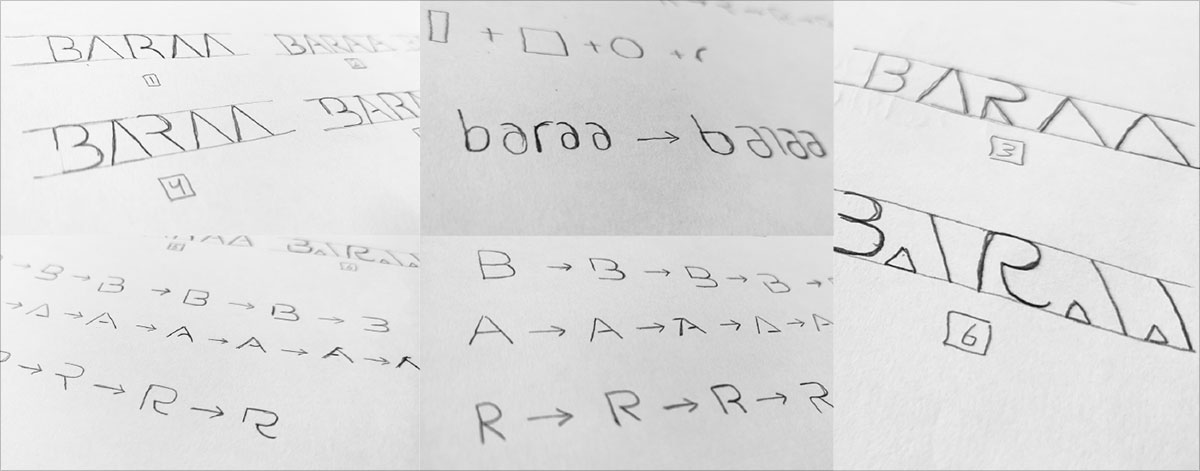 BARAA BARAA
1 2
BARAA BAR
4
+ + O + r
baraa → baraa
BARAA
3
BARAA
6
BARAA
6
→ B → B → B → B → 3
→ A → A → A → A → A → A
→ R → R → R
B → B → B → B →
A → A → A → A → A
R → R → R → R